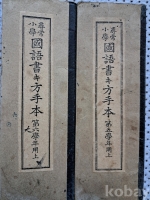 尋常
小學
國語書キ方手本 第五學年用上
尋常
小學
國語書キ方手本 第六學年用上